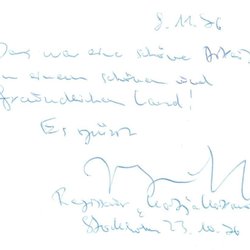 8. 11. 76
Das war eine schöne Arbeit
in einem schönen und
freundlichen Land!
Es grüsst
Stockholm 23. 10. 76